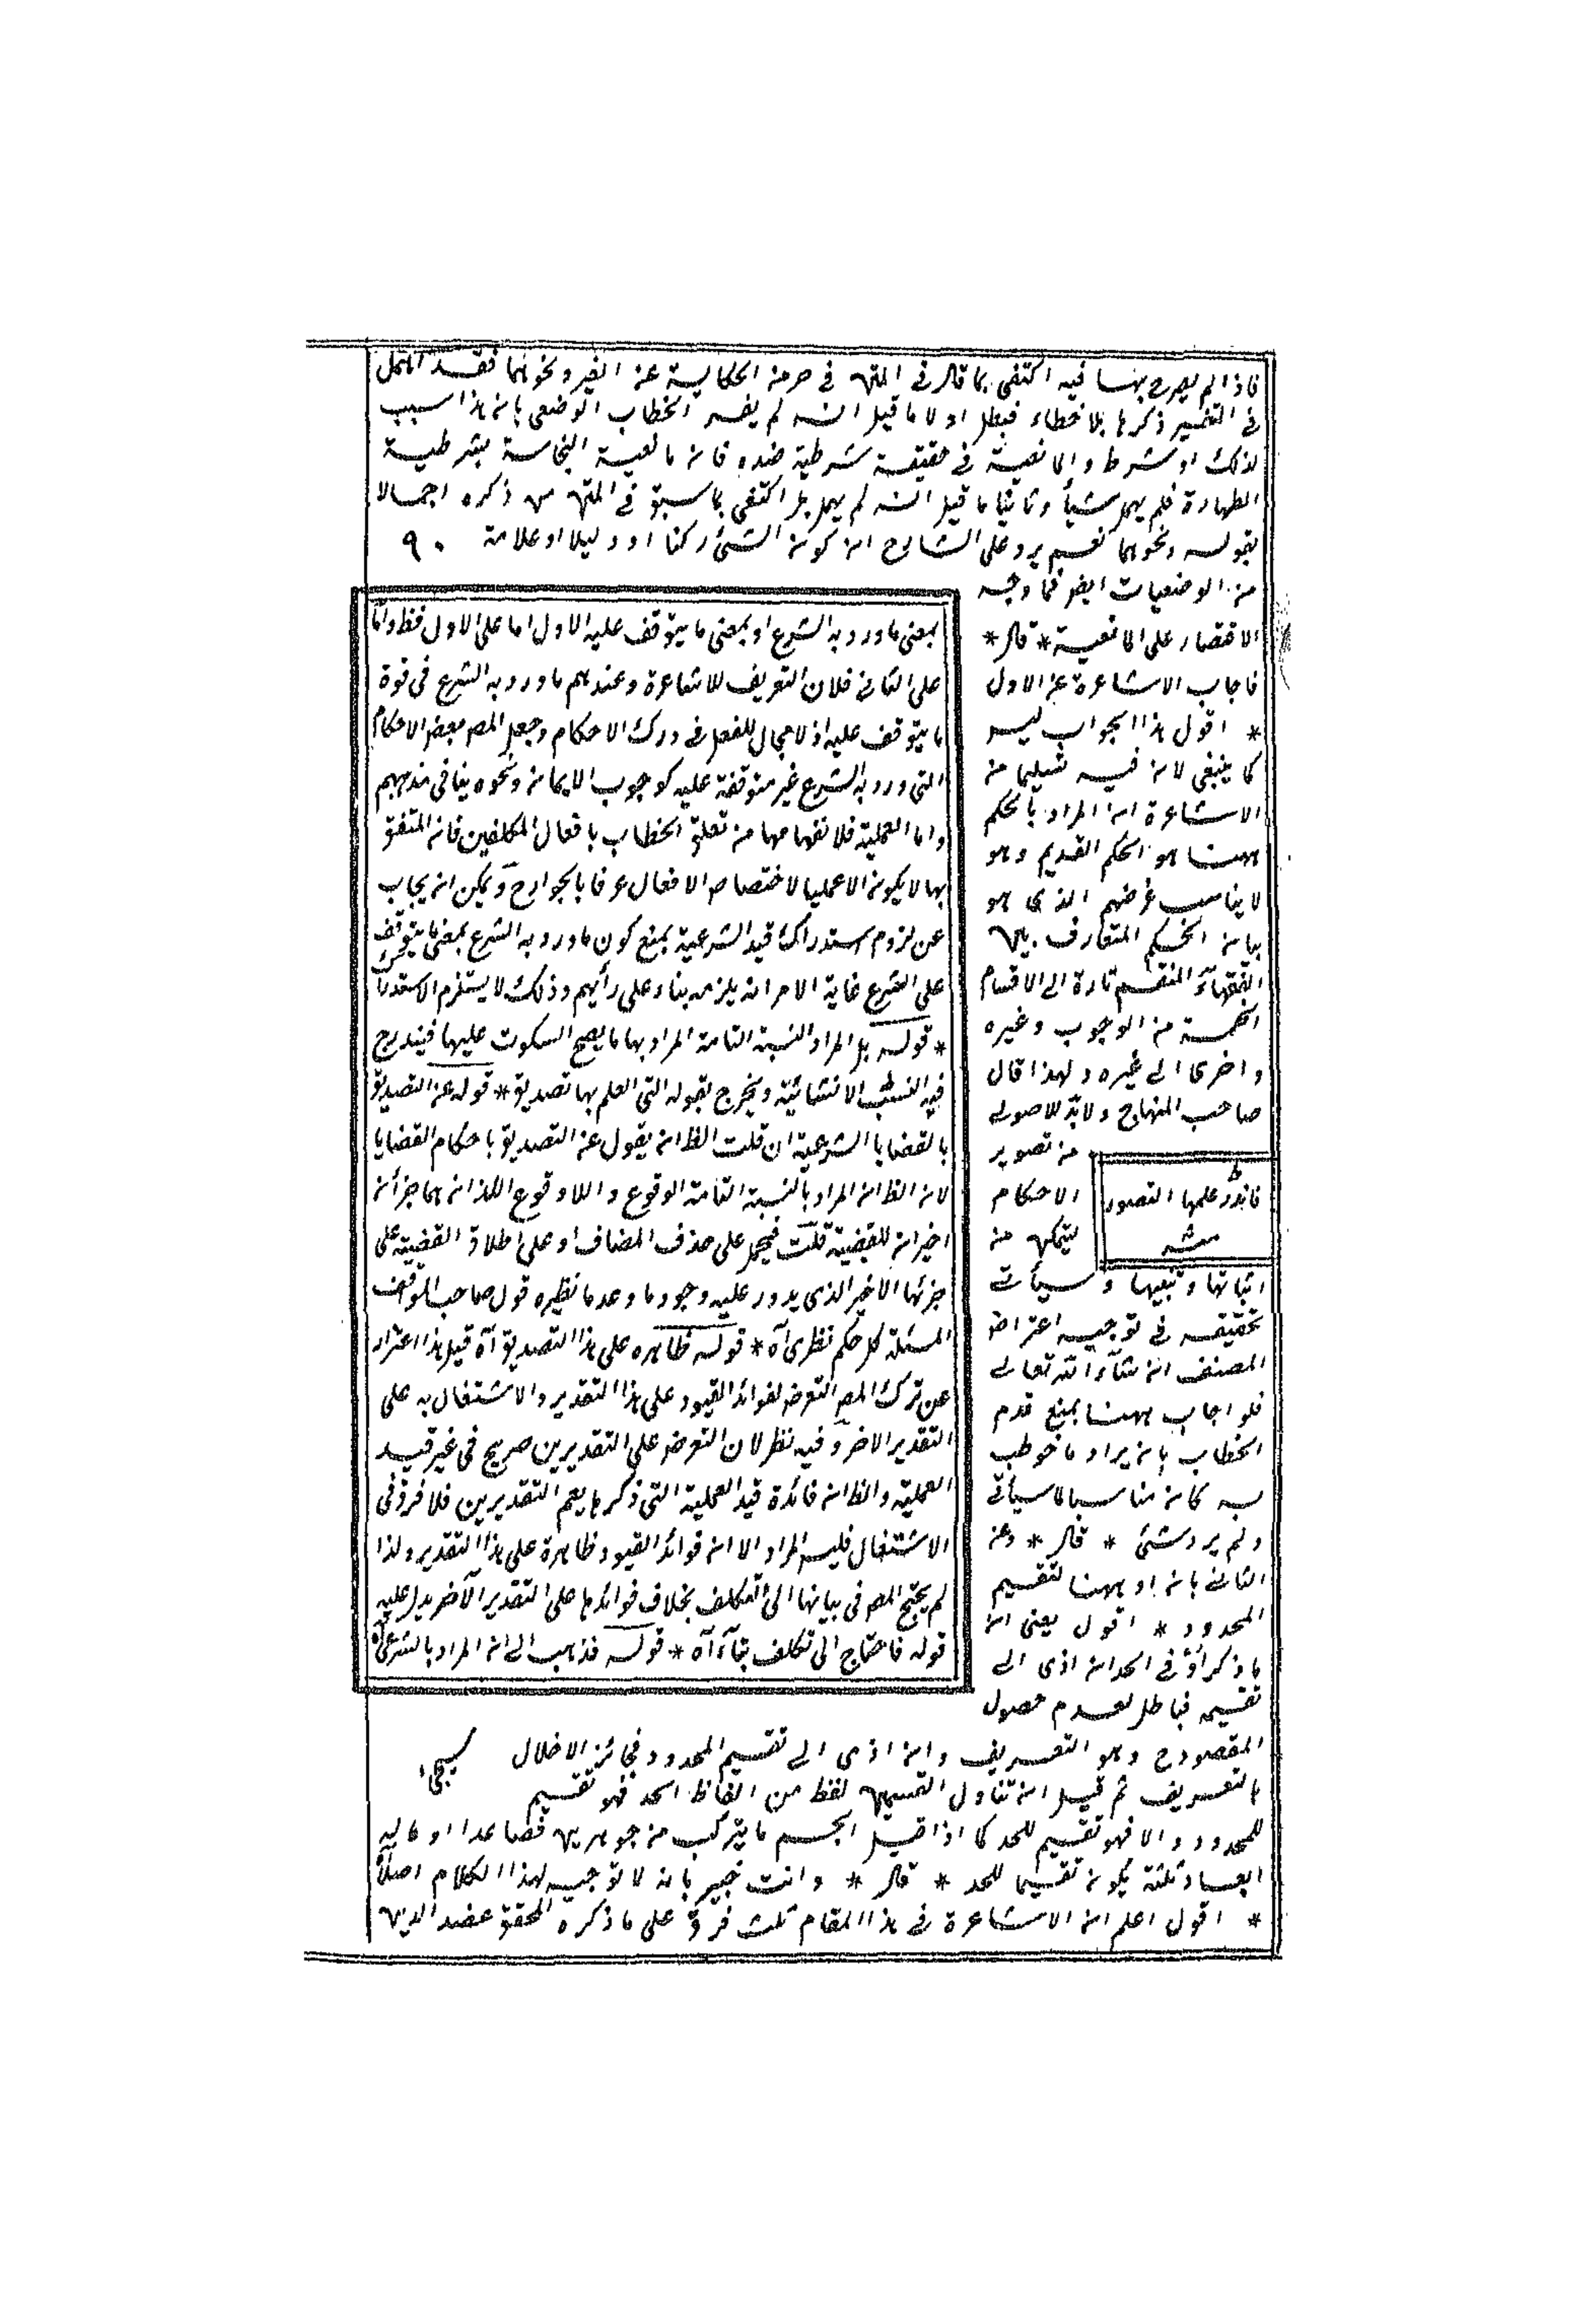 فاذا لم يصرح بهما فيه اكتفى بما قال فى المتن فى صرمنه الحكاية عن الغير ونحوهما فقد اهمل
فى التفسير ذكرها بلا خطاء فبطل اولا ما قيل انه لم يفسر الخطاب الوضعى بانه هذا سبب
لذلك او شرط والمانعية فى حقيقة شرطية ضده فانه مانعية النجاسة بشرطية
الطهارة فلم يهمل شيأ وثانيا ما قيل انه لم يهمل بل اكتفى بما سبق فى المتن من ذكره اجمالا
بقوله ونحوهما نعم يرد على الشارح ان كون الشئ ركنا او دليلا او علامة ٩٠
من الوضعيات ايضا فما وجه
الاقتصار على المانعية * قال *
فاجاب الاشاعرة عن الاول
* اقول هذا الجواب ليس
كما ينبغى لان فيه تسليما من
الاشاعرة ان المراد بالحكم
ههنا هو الحكم القديم وهو
لا يناسب غرضهم الذى هو
بيان الحكم المتعارف بين
الفقهاء المنقسم تارة الى الاقسام
الخمسة من الوجوب وغيره
واخرى الى غيره ولهذا قال
صاحب المنهاج ولابد للاصولى
من تصوير
الاحكام
ليتمكن من
اثباتها ونفيها وسيأتى
تحقيقه فى توجيه اعتراض
المصنف ان شاء الله تعالى
فلو اجاب ههنا بمنع قدم
الخطاب بانه يراد ما خوطب
به كان مناسبا لما سيأتى
ولم يرد شئ * قال * وعن
الثانى بان او ههنا لتقسيم
المحدود * اقول يعنى ان
ما ذكر او فى الحد ان ادى الى
تقسيمه فباطل لعدم حصول
المقصود ح وهو التعريف وان ادى الى تقسيم المحدود فجائز الاخلال
بالتعريف ثم قيل ان تناول القسمين لفظ من الفاظ الحد فهو تقسيم
للمحدود والا فهو تقسيم للحد كما اذا قيل الجسم ما يتركب من جوهرين فصاعدا او ماله
ابعاد ثلثة يكون تقسيما للحد * قال * وانت خبير بانه لا توجيه لهذا الكلام اصلا
* اقول اعلم ان الاشاعرة فى هذا المقام ثلث فرق على ما ذكره المحقق عضد الدين
فانه علمها التصور
منه
بمعنى ما ورد به الشرع او بمعنى ما يتوقف عليه الاول اما على الاول فظ واما
على الثانى فلان التعريف للاشاعرة وعندهم ما ورد به الشرع فى قوة
ما يتوقف عليه اذ لا مجال للعقل فى درك الاحكام وجعل المص بعض الاحكام
التى ورد به الشرع غير متوقفة عليه كوجوب الايمان ونحوه ينافى مذهبهم
واما العملية فلانفهامها من تعلق الخطاب بافعال المكلفين فان المتعلق
بها لا يكون الا عمليا لاختصاص الافعال عرفا بالجوارح ويمكن ان يجاب
عن لزوم استدراك قيد الشرعية بمنع كون ما ورد به الشرع بمعنى ما يتوقف
على الشرع غاية الامر انه يلزمه بناء على رأيهم وذلك لا يستلزم الاستدراك
* قوله بل المراد النسبة التامة المراد بها ما يصح السكوت عليها فيندرج
فيه النسب الانشائية ويخرج بقوله التى العلم بها تصديق * قوله عن التصديق
بالقضايا الشرعية ان قلت الظ ان يقول عن التصديق باحكام القضايا
لان الظ ان المراد بالنسبة التامة الوقوع واللاوقوع اللذان هما جزأن
اخيران للقضية قلت فيحمل على حذف المضاف او على اطلاق القضية على
جزئها الاخير الذى يدور عليه وجودها وعدمها نظيره قول صاحب المواقف
المسئلة كل حكم نظرى اه * قوله ظاهره على هذا التصديق آه قيل هذا اعتذار
عن ترك المص التعرض لفوائد القيود على هذا التقدير والاشتغال به على
التقدير الاخر وفيه نظر لان التعرض على التقديرين صريح فى غير قيد
العملية والظ ان فائدة قيد العملية التى ذكرها يعم التقديرين فلا فرق فى
الاشتغال فليس المراد الا ان فوائد القيود ظاهرة على هذا التقدير ولذا
لم يحتج المص فى بيانها الى التكلف بخلاف فوائدها على التقدير الاخر يدل عليه
قوله فاحتاج الى تكلف بقاء آه * قوله فذهب الى ان المراد بالشرعى اه
سيجئ